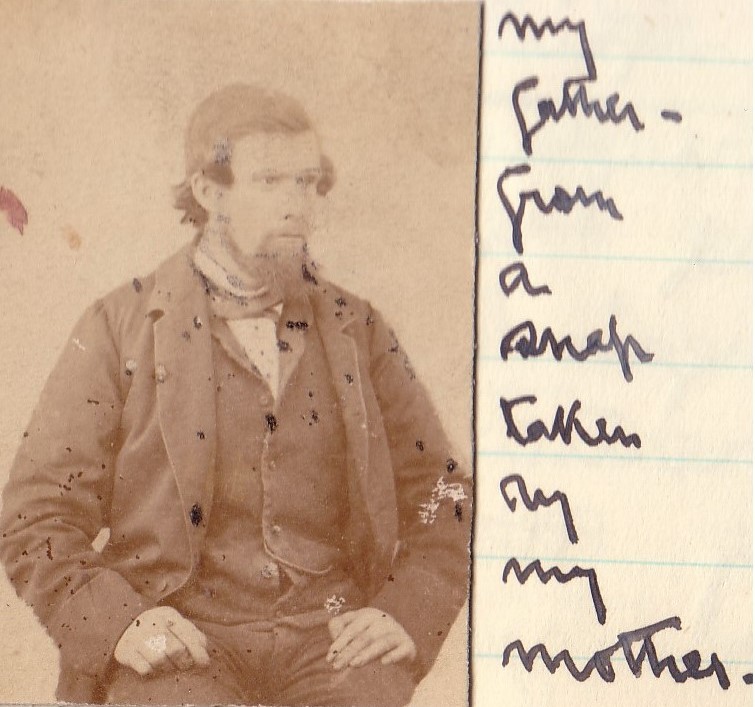 my
father -
from
a
snap
taken
by
my
mother.